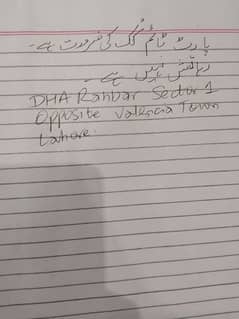 پارٹ ٹائم کک کی ضرورت ہے۔
رہائش نہیں ہے۔
DHA Rahbar Sector 1
Opposite Valencia Town
Lahore.